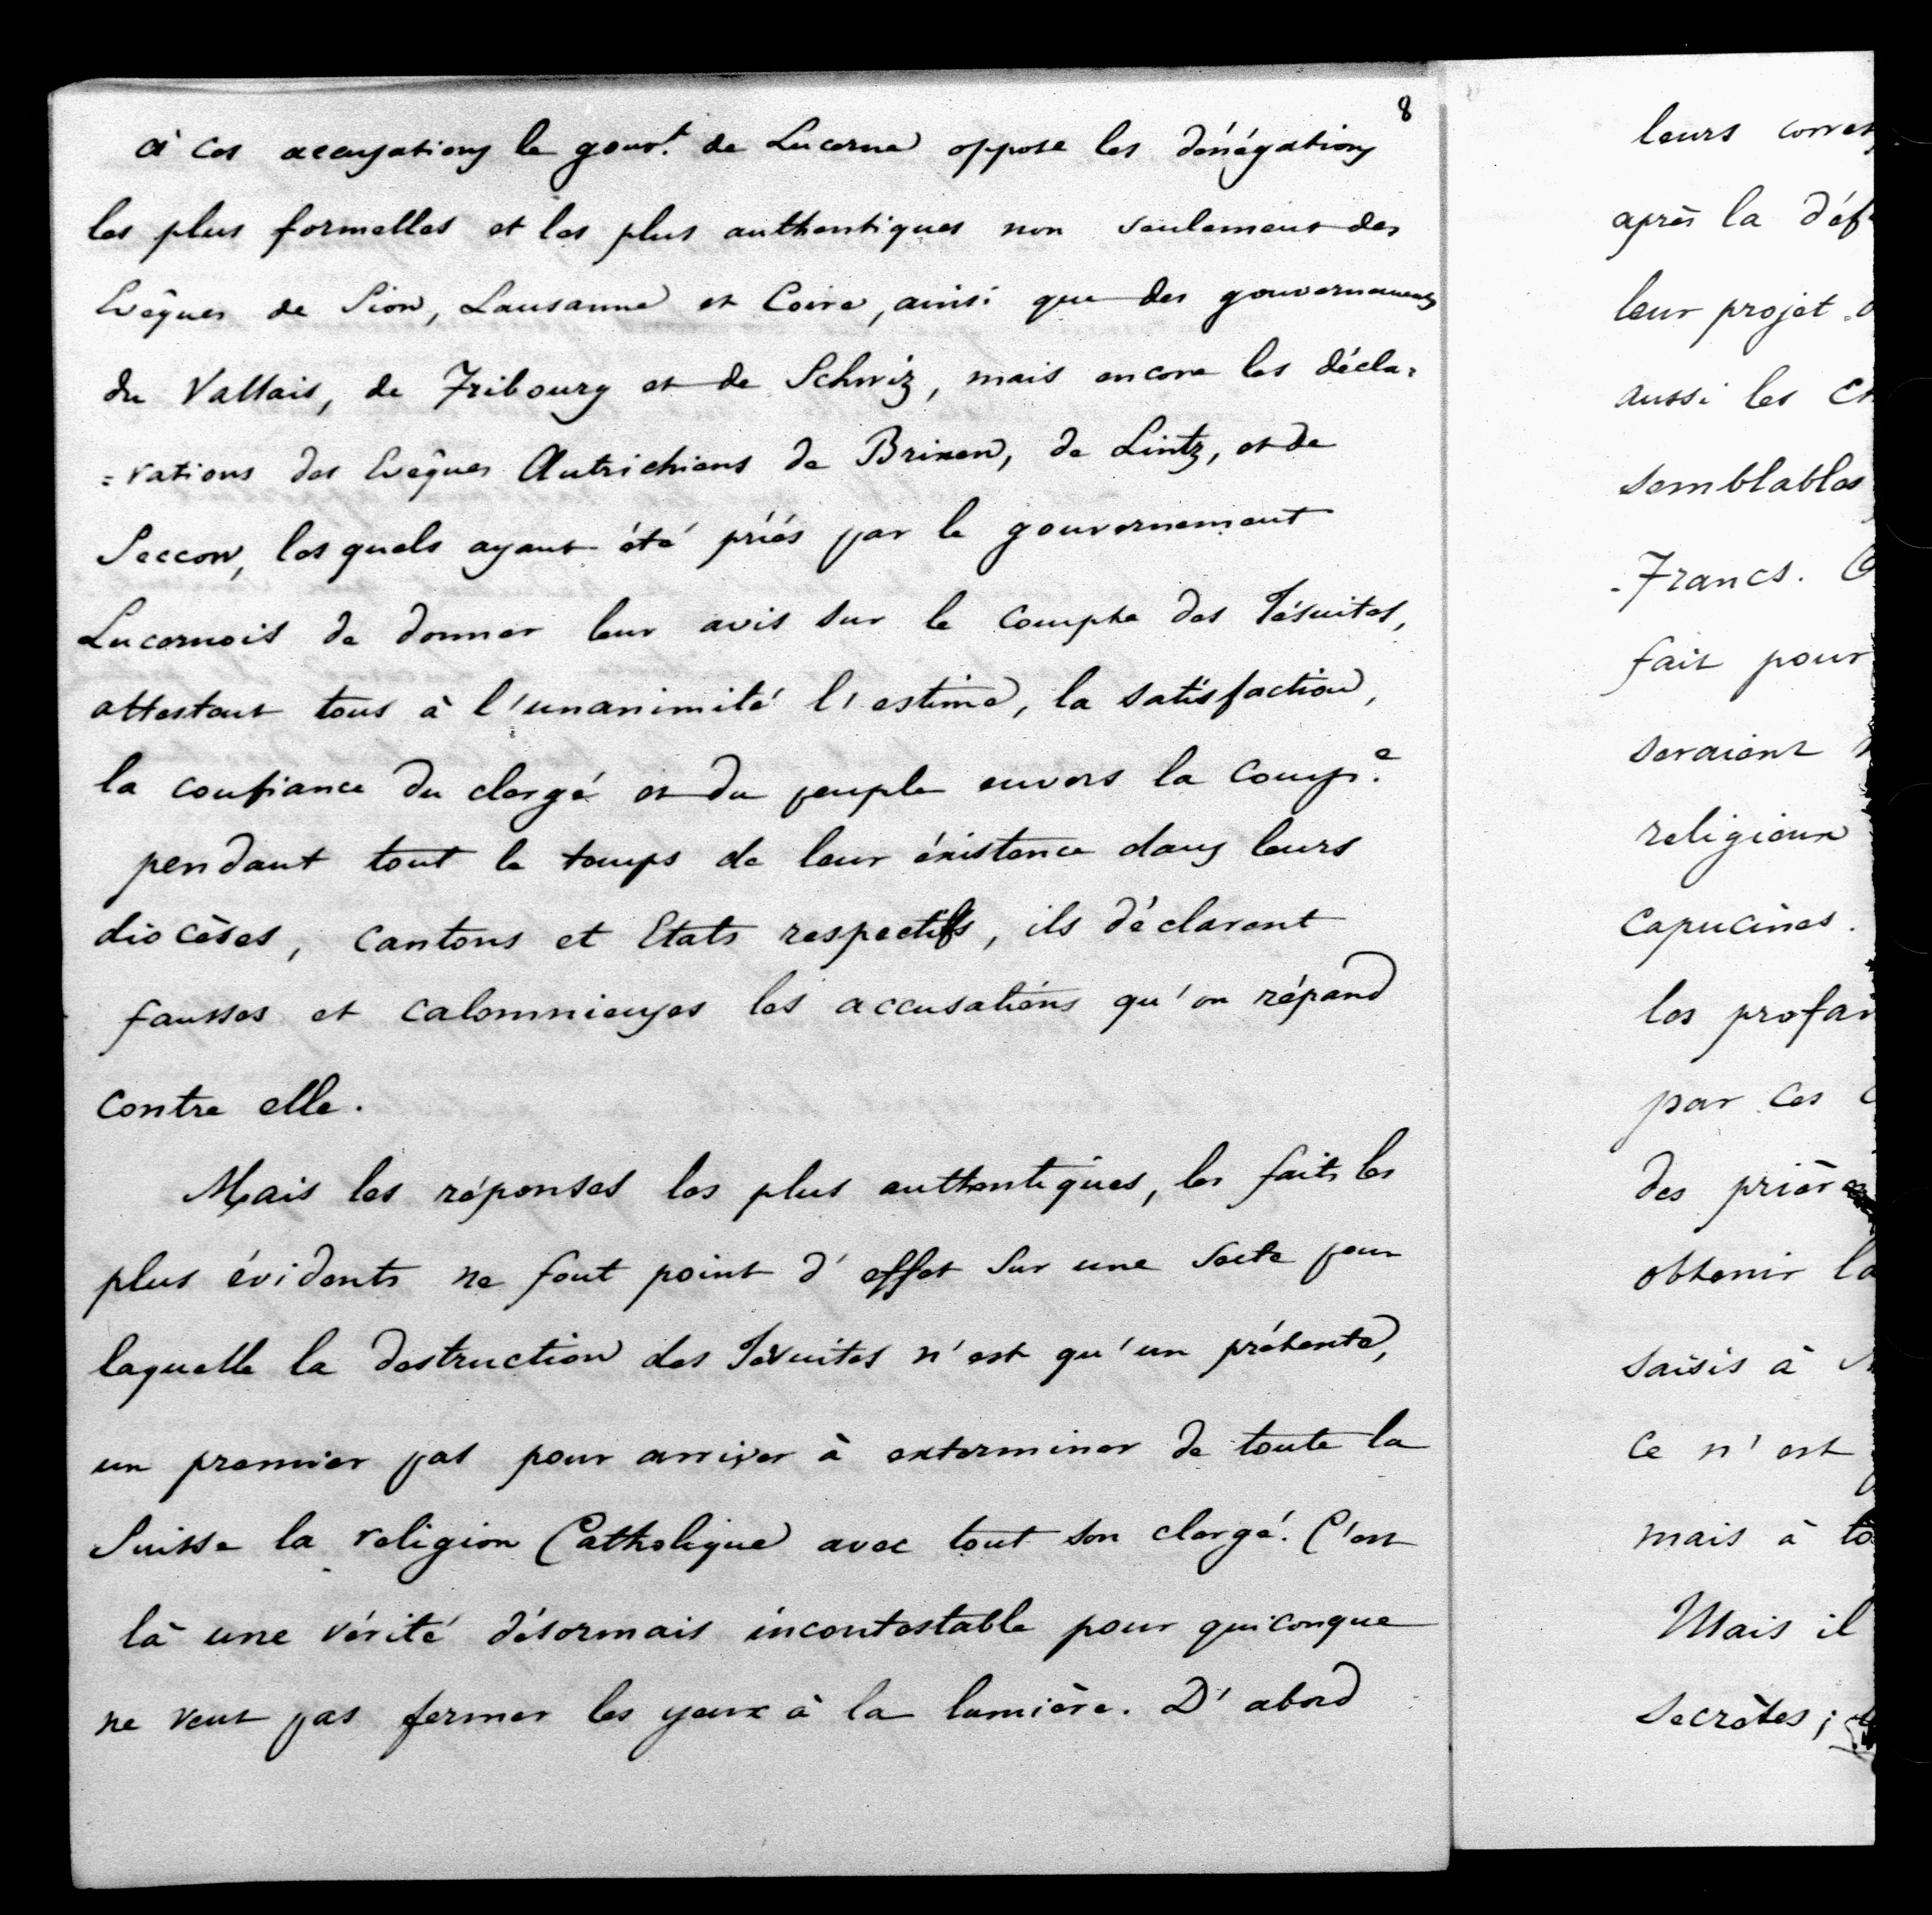 8
à ces accusations le gouvt. de Lucerne oppose les dénégations
les plus formelles et les plus authentiques non seulement des
Evêques de Sion, Lausanne et Coire, ainsi que des gouvernements
du Vallais, de Fribourg et de Schwiz, mais encore les décla=
=rations des Evêques Autrichiens de Brixen, de Lintz, et de
Seccow, lesquels ayant été priés par le gouvernement
Lucernois de donner leur avis sur le compte des Jésuites,
attestent tous à l'unanimité l'estime, la satisfaction,
la confiance du clergé et du peuple envers la Compe.
pendant tout le temps de leur éxistence dans leurs
diocèses, Cantons et Etats respectifs, ils déclarent
fausses et calomnieuses les accusations qu'on répand
contre elle.
Mais les réponses les plus authentiques, les faits les
plus évidents ne font point d'effet sur une secte pour
laquelle la destruction des Jésuites n'est qu'un prétexte,
un premier pas pour arriver à exterminer de toute la
Suisse la religion Catholique avec tout son clergé. C'est
là une vérité désormais incontestable pour quiconque
ne veut pas fermer les yeux à la lumière. D'abord
leurs
après la
leur projet
aussi les
semblables
-Francs.
fait pour
seraient
religieux
Capucines.
les profan
par ces
des prières
obtenir la
saisis à
ce n'est
mais à to
Mais il
secrètes;